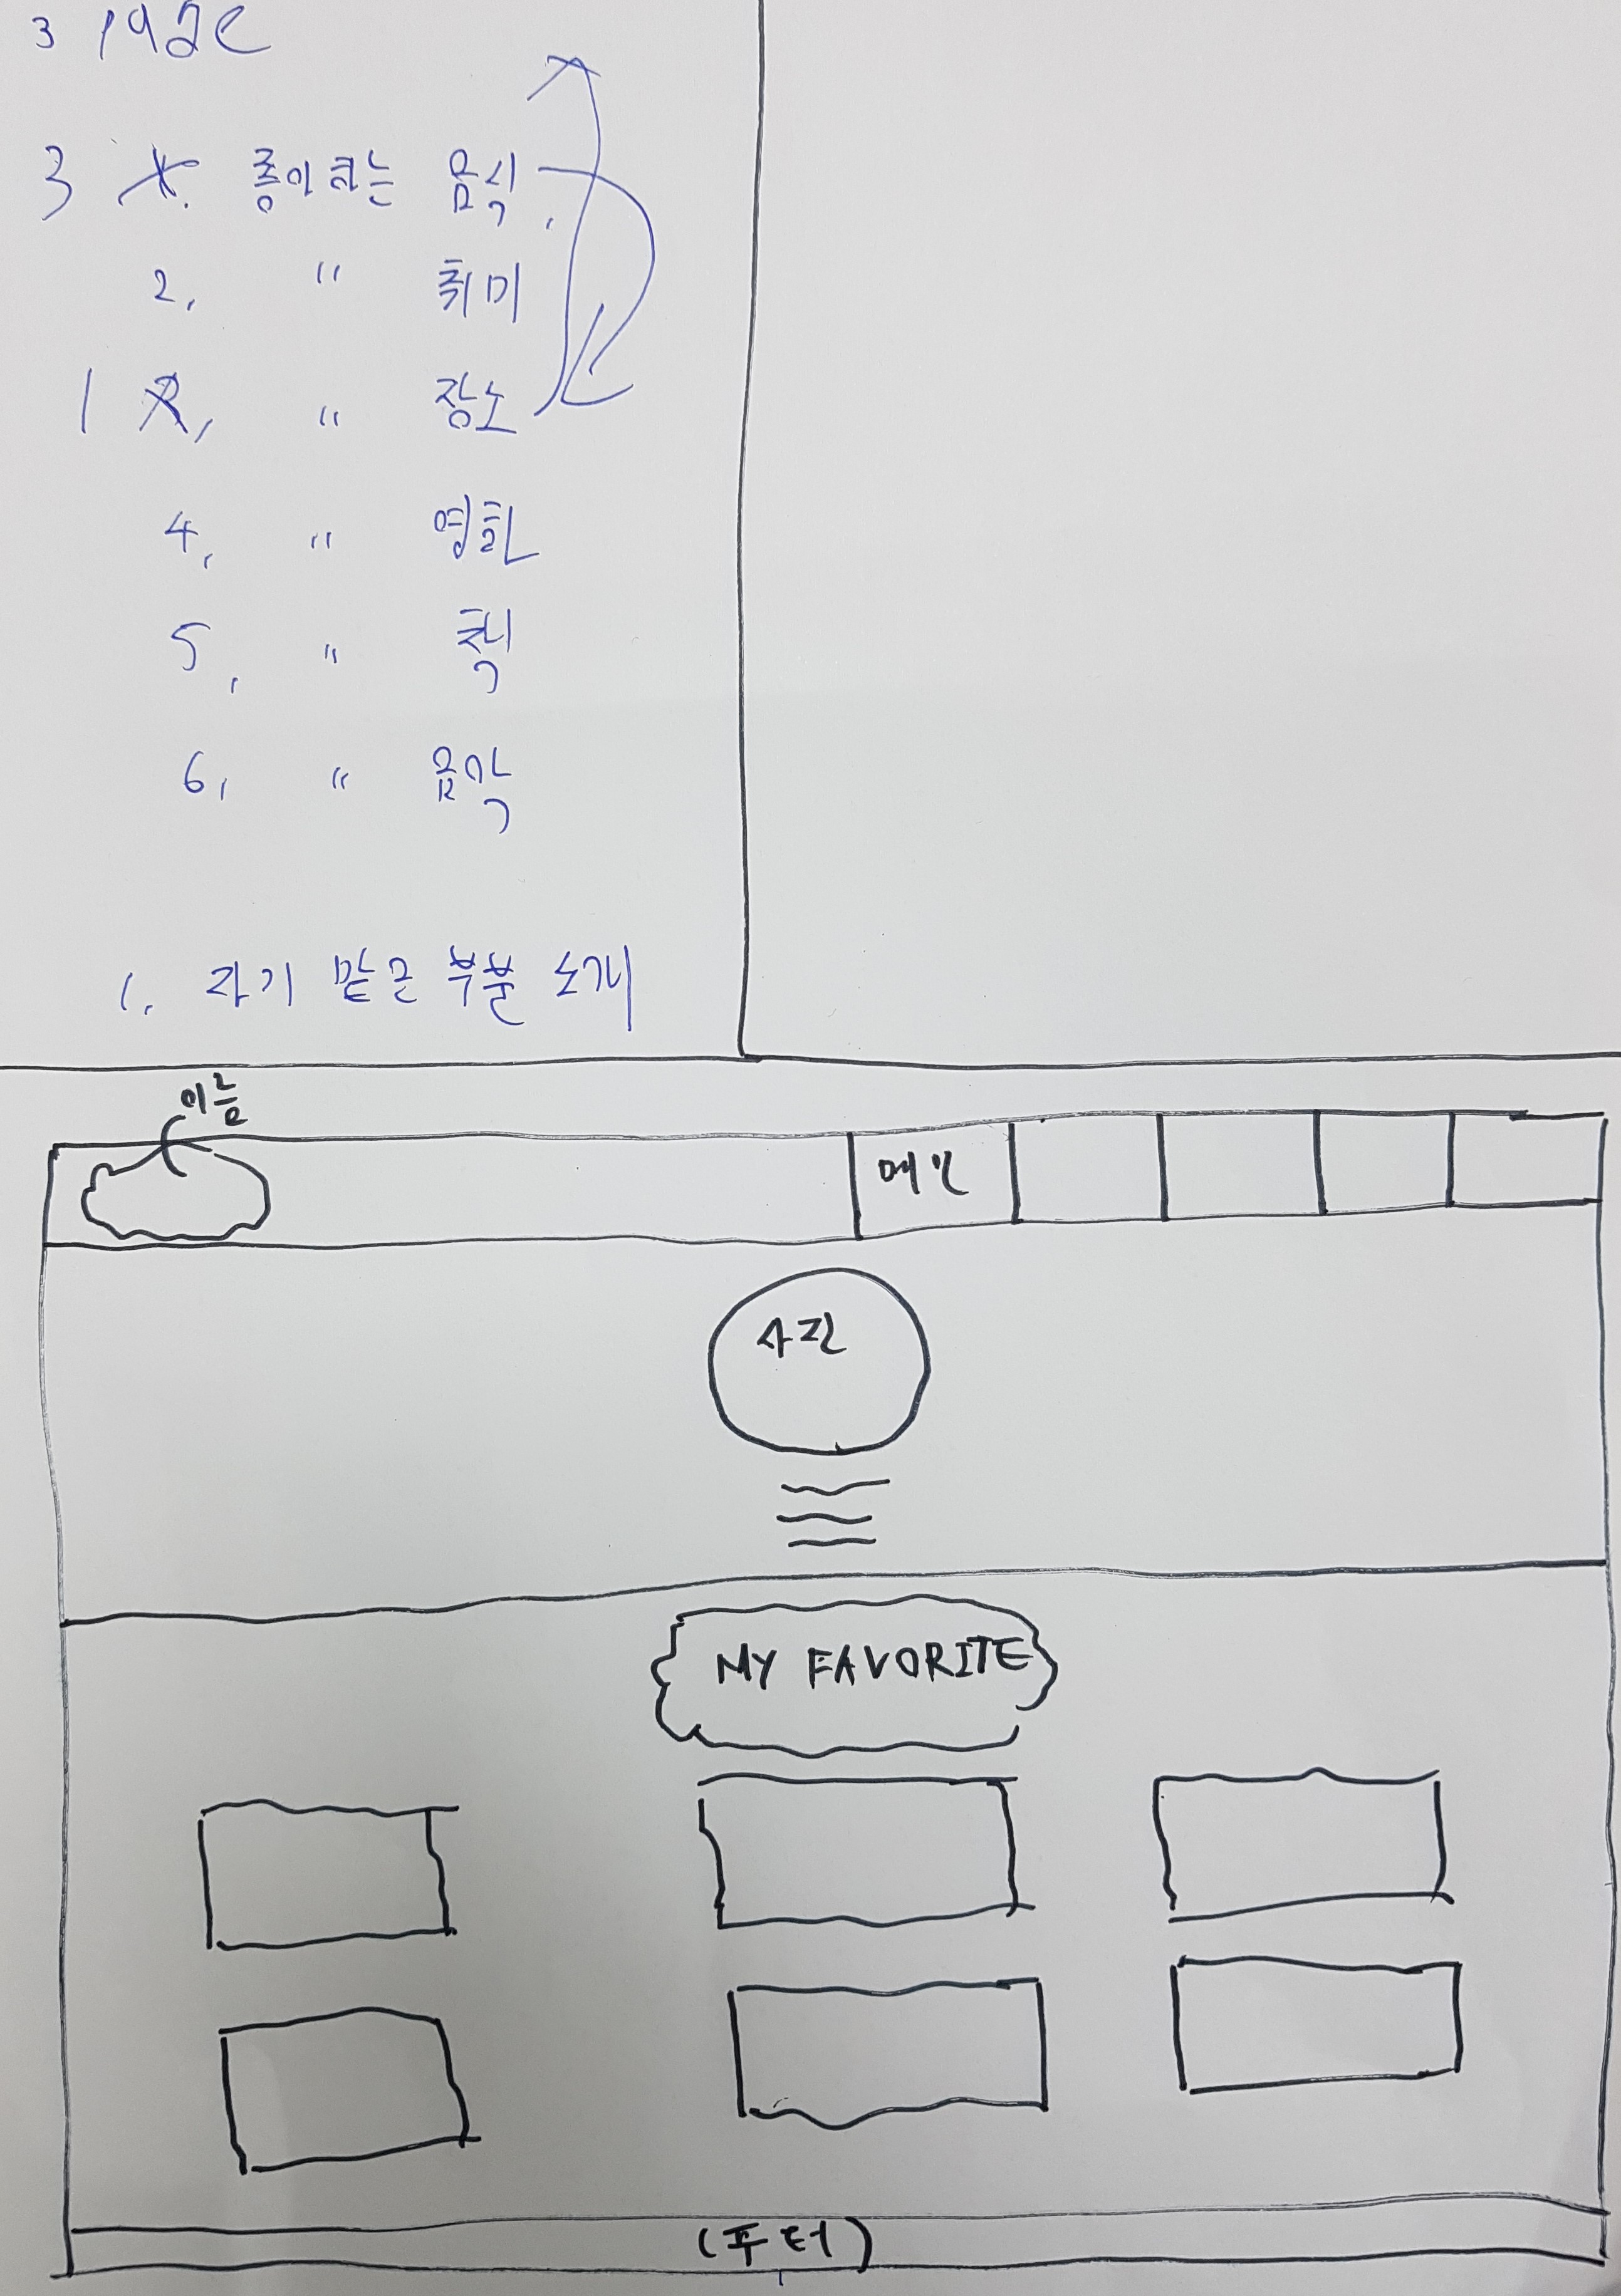 3 page
3 1. 좋아하는 음식.
2, " 취미
1 3, " 장소
4, " 영화
5, " 책
6, " 음악
1. 자기 맡은 부분 소개
이름
메인
사진
MY FAVORITE
(푸터)